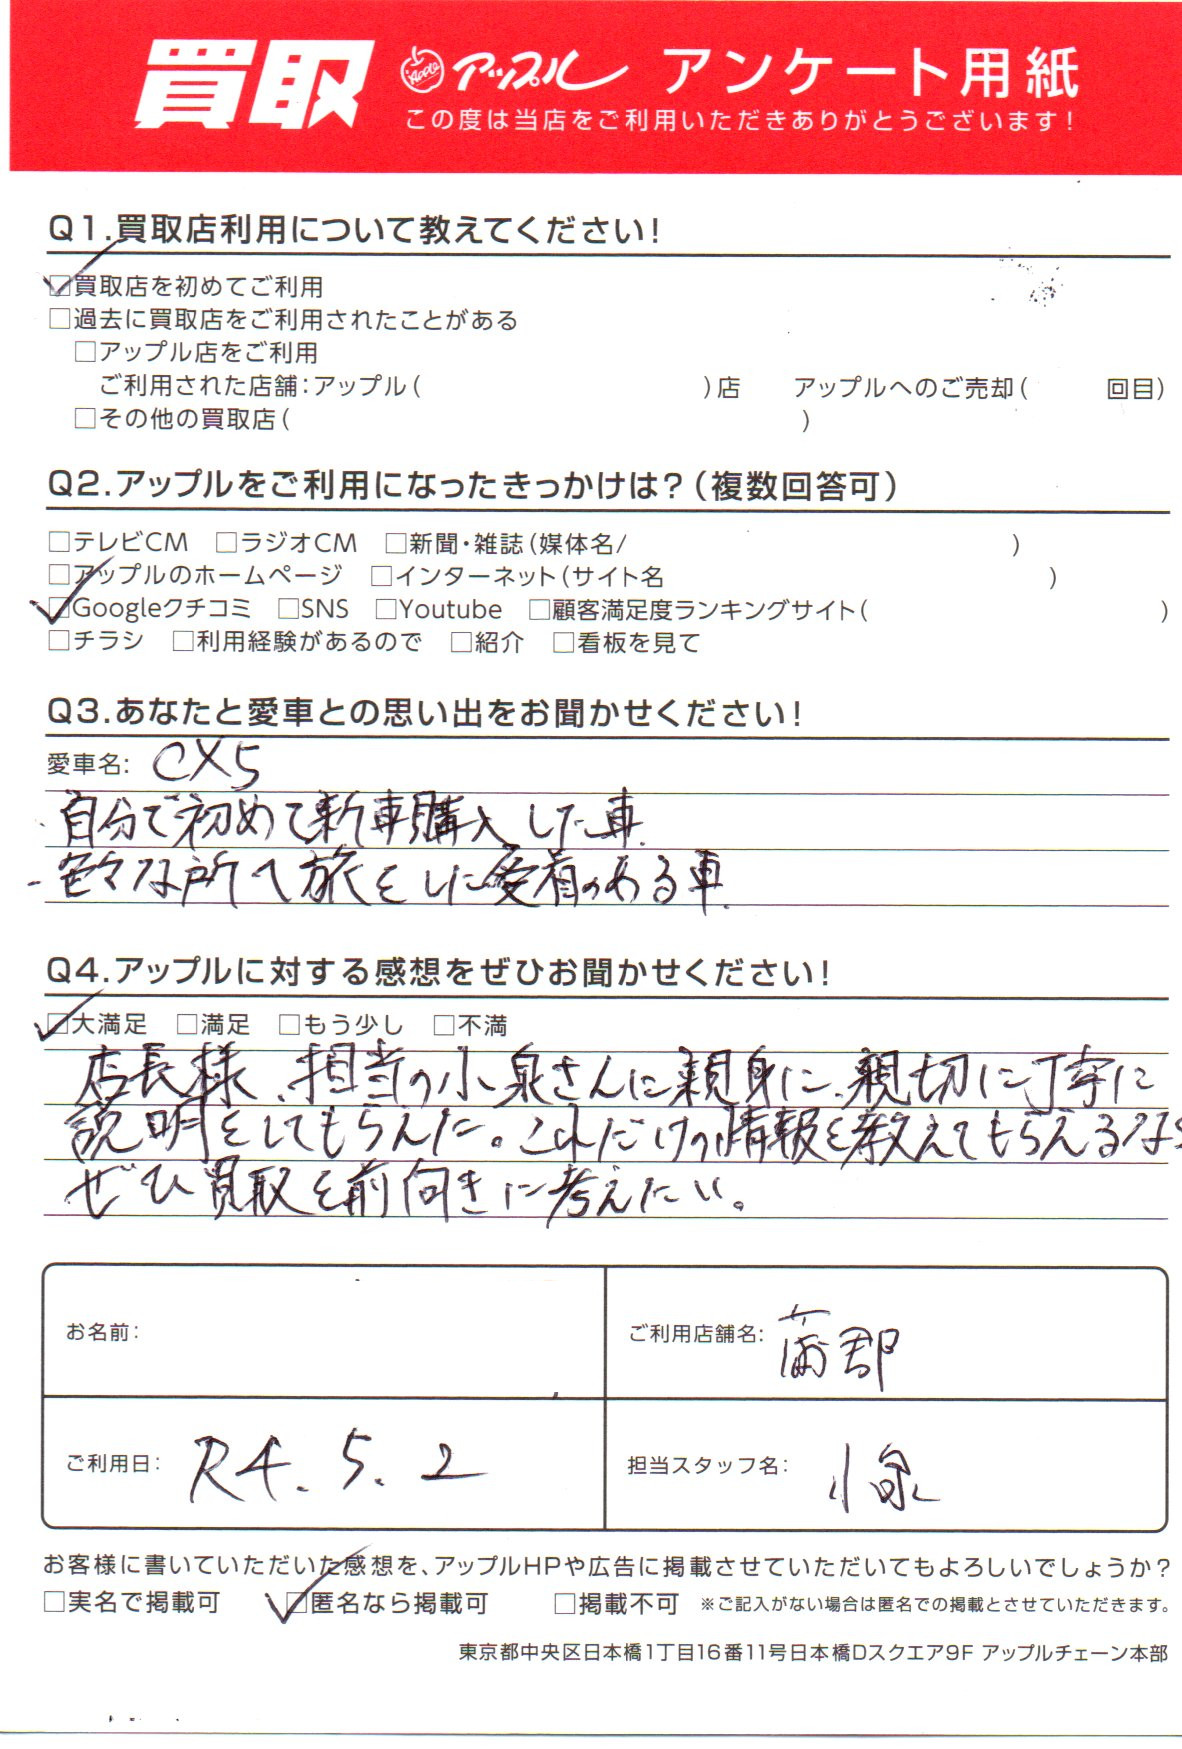 買取 Apple アップル アンケート用紙
この度は当店をご利用いただきありがとうございます!
Q1.買取店利用について教えてください!
☑買取店を初めてご利用
□過去に買取店をご利用されたことがある
□アップル店をご利用
ご利用された店舗:アップル( )店 アップルへのご売却( 回目)
□その他の買取店( )
Q2.アップルをご利用になったきっかけは?(複数回答可)
□テレビCM □ラジオCM □新聞・雑誌(媒体名/ )
□アップルのホームページ □インターネット(サイト名 )
☑Googleクチコミ □SNS □Youtube □顧客満足度ランキングサイト( )
□チラシ □利用経験があるので □紹介 □看板を見て
Q3.あなたと愛車との思い出をお聞かせください!
愛車名: CX5
・自分で初めて新車購入した車
・色々な所へ旅をした愛着のある車
Q4.アップルに対する感想をぜひお聞かせください!
☑大満足 □満足 □もう少し □不満
店長様、担当の小泉さんに親身に、親切に丁寧に
説明をしてもらえた。これだけの情報を教えてもらえるなら
ぜひ買取を前向きに考えたい。
お名前:
ご利用店舗名: 蒲郡
ご利用日: R4.5.2
担当スタッフ名: 小泉
お客様に書いていただいた感想を、アップルHPや広告に掲載させていただいてもよろしいでしょうか?
□実名で掲載可 ☑匿名なら掲載可 □掲載不可 ※ご記入がない場合は匿名での掲載とさせていただきます。
東京都中央区日本橋1丁目16番11号日本橋Dスクエア9F アップルチェーン本部